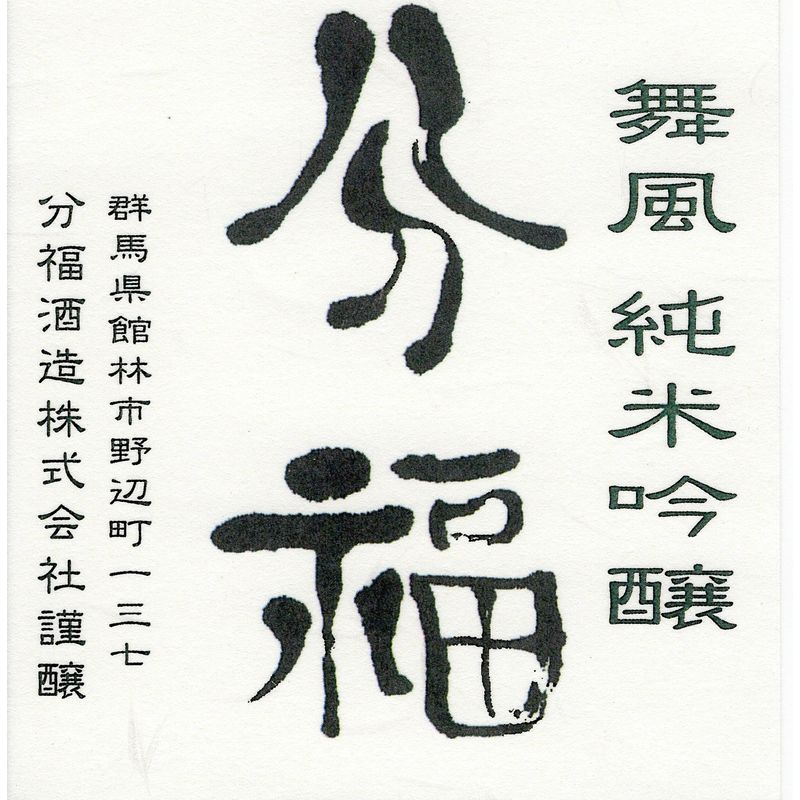 舞風 純米吟醸
分福
群馬県館林市野辺町一三七
分福酒造株式会社謹醸